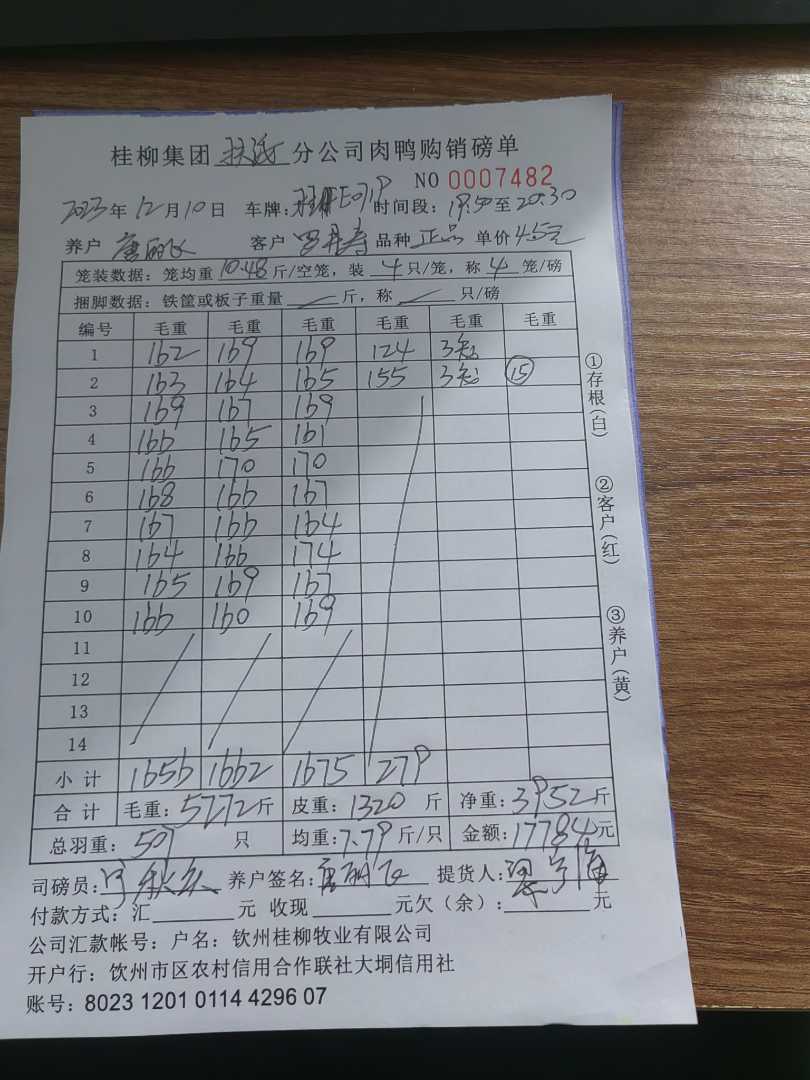 桂柳集团 分公司肉鸭购销磅单
NO 0007482
2023年 12月 10日 车牌: 时间段: 19:50至20:30
养户 唐丽飞 客户 品种 正品 单价 4.5元
笼装数据: 笼均重 10.48 斤/空笼, 装 4 只/笼, 称 4 笼/磅
捆脚数据: 铁筐或板子重量 斤, 称 只/磅
编号 毛重 毛重 毛重 毛重 毛重 毛重
1 162 169 169 124 3
2 163 164 165 155 3 ⑮
3 169 167 169
4 166 165 161
5 166 170 170
6 168 166 167
7 167 166 164
8 164 166 174
9 165 169 167
10 166 160 169
11
12
13
14
小计 1656 1662 1675 279
合计 毛重: 5272斤 皮重: 1320 斤 净重: 3952斤
总羽重: 507 只 均重: 7.79 斤/只 金额: 17784元
司磅员: 养户签名: 唐丽飞 提货人:
付款方式: 汇 元 收现 元欠(余): 元
公司汇款帐号: 户名: 钦州桂柳牧业有限公司
开户行: 钦州市区农村信用合作联社大垌信用社
账号: 8023 1201 0114 4296 07
①存根(白)
②客户(红)
③养户(黄)